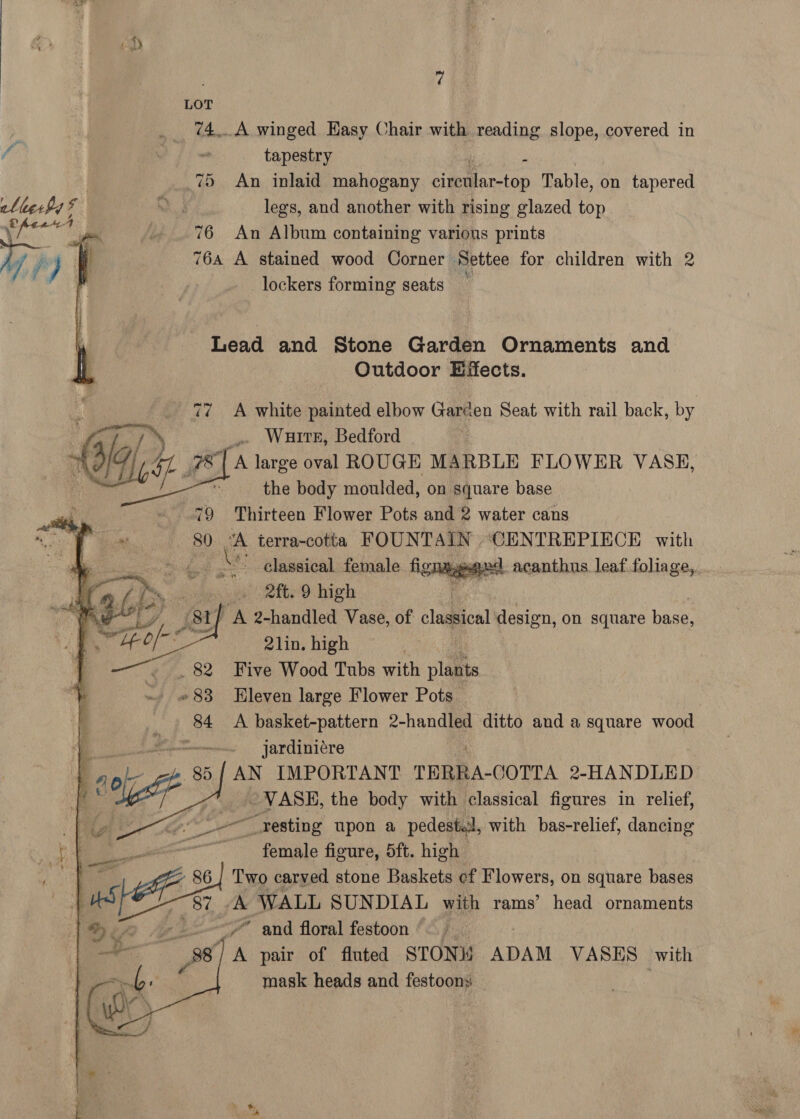 7
LOT
74 A winged Easy Chair with reading slope, covered in
tapestry
75 An inlaid mahogany circular-top Table, on tapered
legs, and another with rising glazed top
76 An Album containing various prints
76A A stained wood Corner Settee for children with 2
lockers forming seats
Lead and Stone Garden Ornaments and
Outdoor Effects.
77 A white painted elbow Garden Seat with rail back, by
WHITE, Bedford
78 A large oval ROUGE MARBLE FLOWER VASE,
the body moulded, on square base
79 Thirteen Flower Pots and 2 water cans
80 A terra-cotta FOUNTAIN CENTREPIECE with
classical female figure and acanthus leaf foliage,
2ft. 9 high
81 A 2-handled Vase, of classical design, on square base,
21in. high
82 Five Wood Tubs with plants
83 Eleven large Flower Pots
84 A basket-pattern 2-handled ditto and a square wood
jardinière
85 AN IMPORTANT TERRA-COTTA 2-HANDLED
VASE, the body with classical figures in relief,
resting upon a pedestal, with bas-relief, dancing
female figure, 5ft. high
86 Two carved stone Baskets of Flowers, on square bases
87 A WALL SUNDIAL with rams' head ornaments
and floral festoon
88 A pair of fluted STONE ADAM VASES with
mask heads and festoons